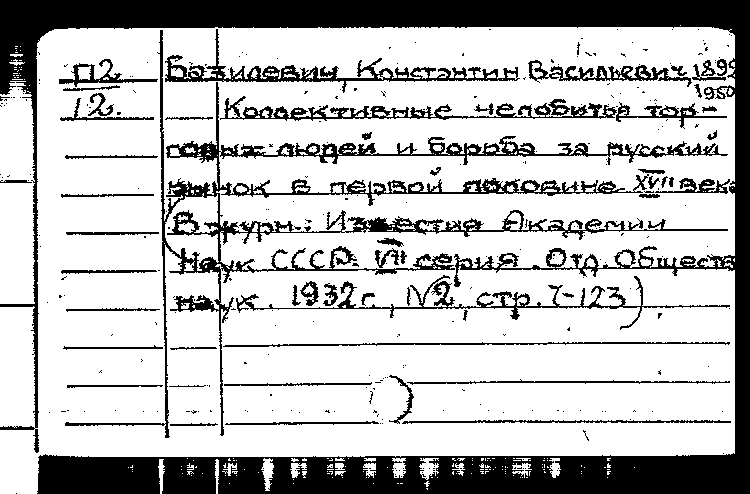 П2 Базилевич, Константин Васильевич, 1892
1950
12. Коллективные челобитья тор-
говых людей и борьба за русский
рынок в первой половине XVII века
(В журн.: Известия Академии
Наук СССР. VII серия. Отд. Обществ
наук. 1932 г., №2, стр. 7-123).